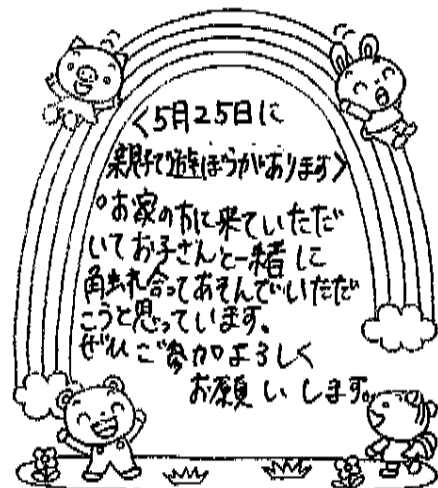 <5月25日に
親子で遊ぼうがあります>
○お家の方に来ていただ
いてお子さんと一緒に
触れ合ってあそんでいただ
こうと思っています。
ぜひご参加よろしく
お願いします。